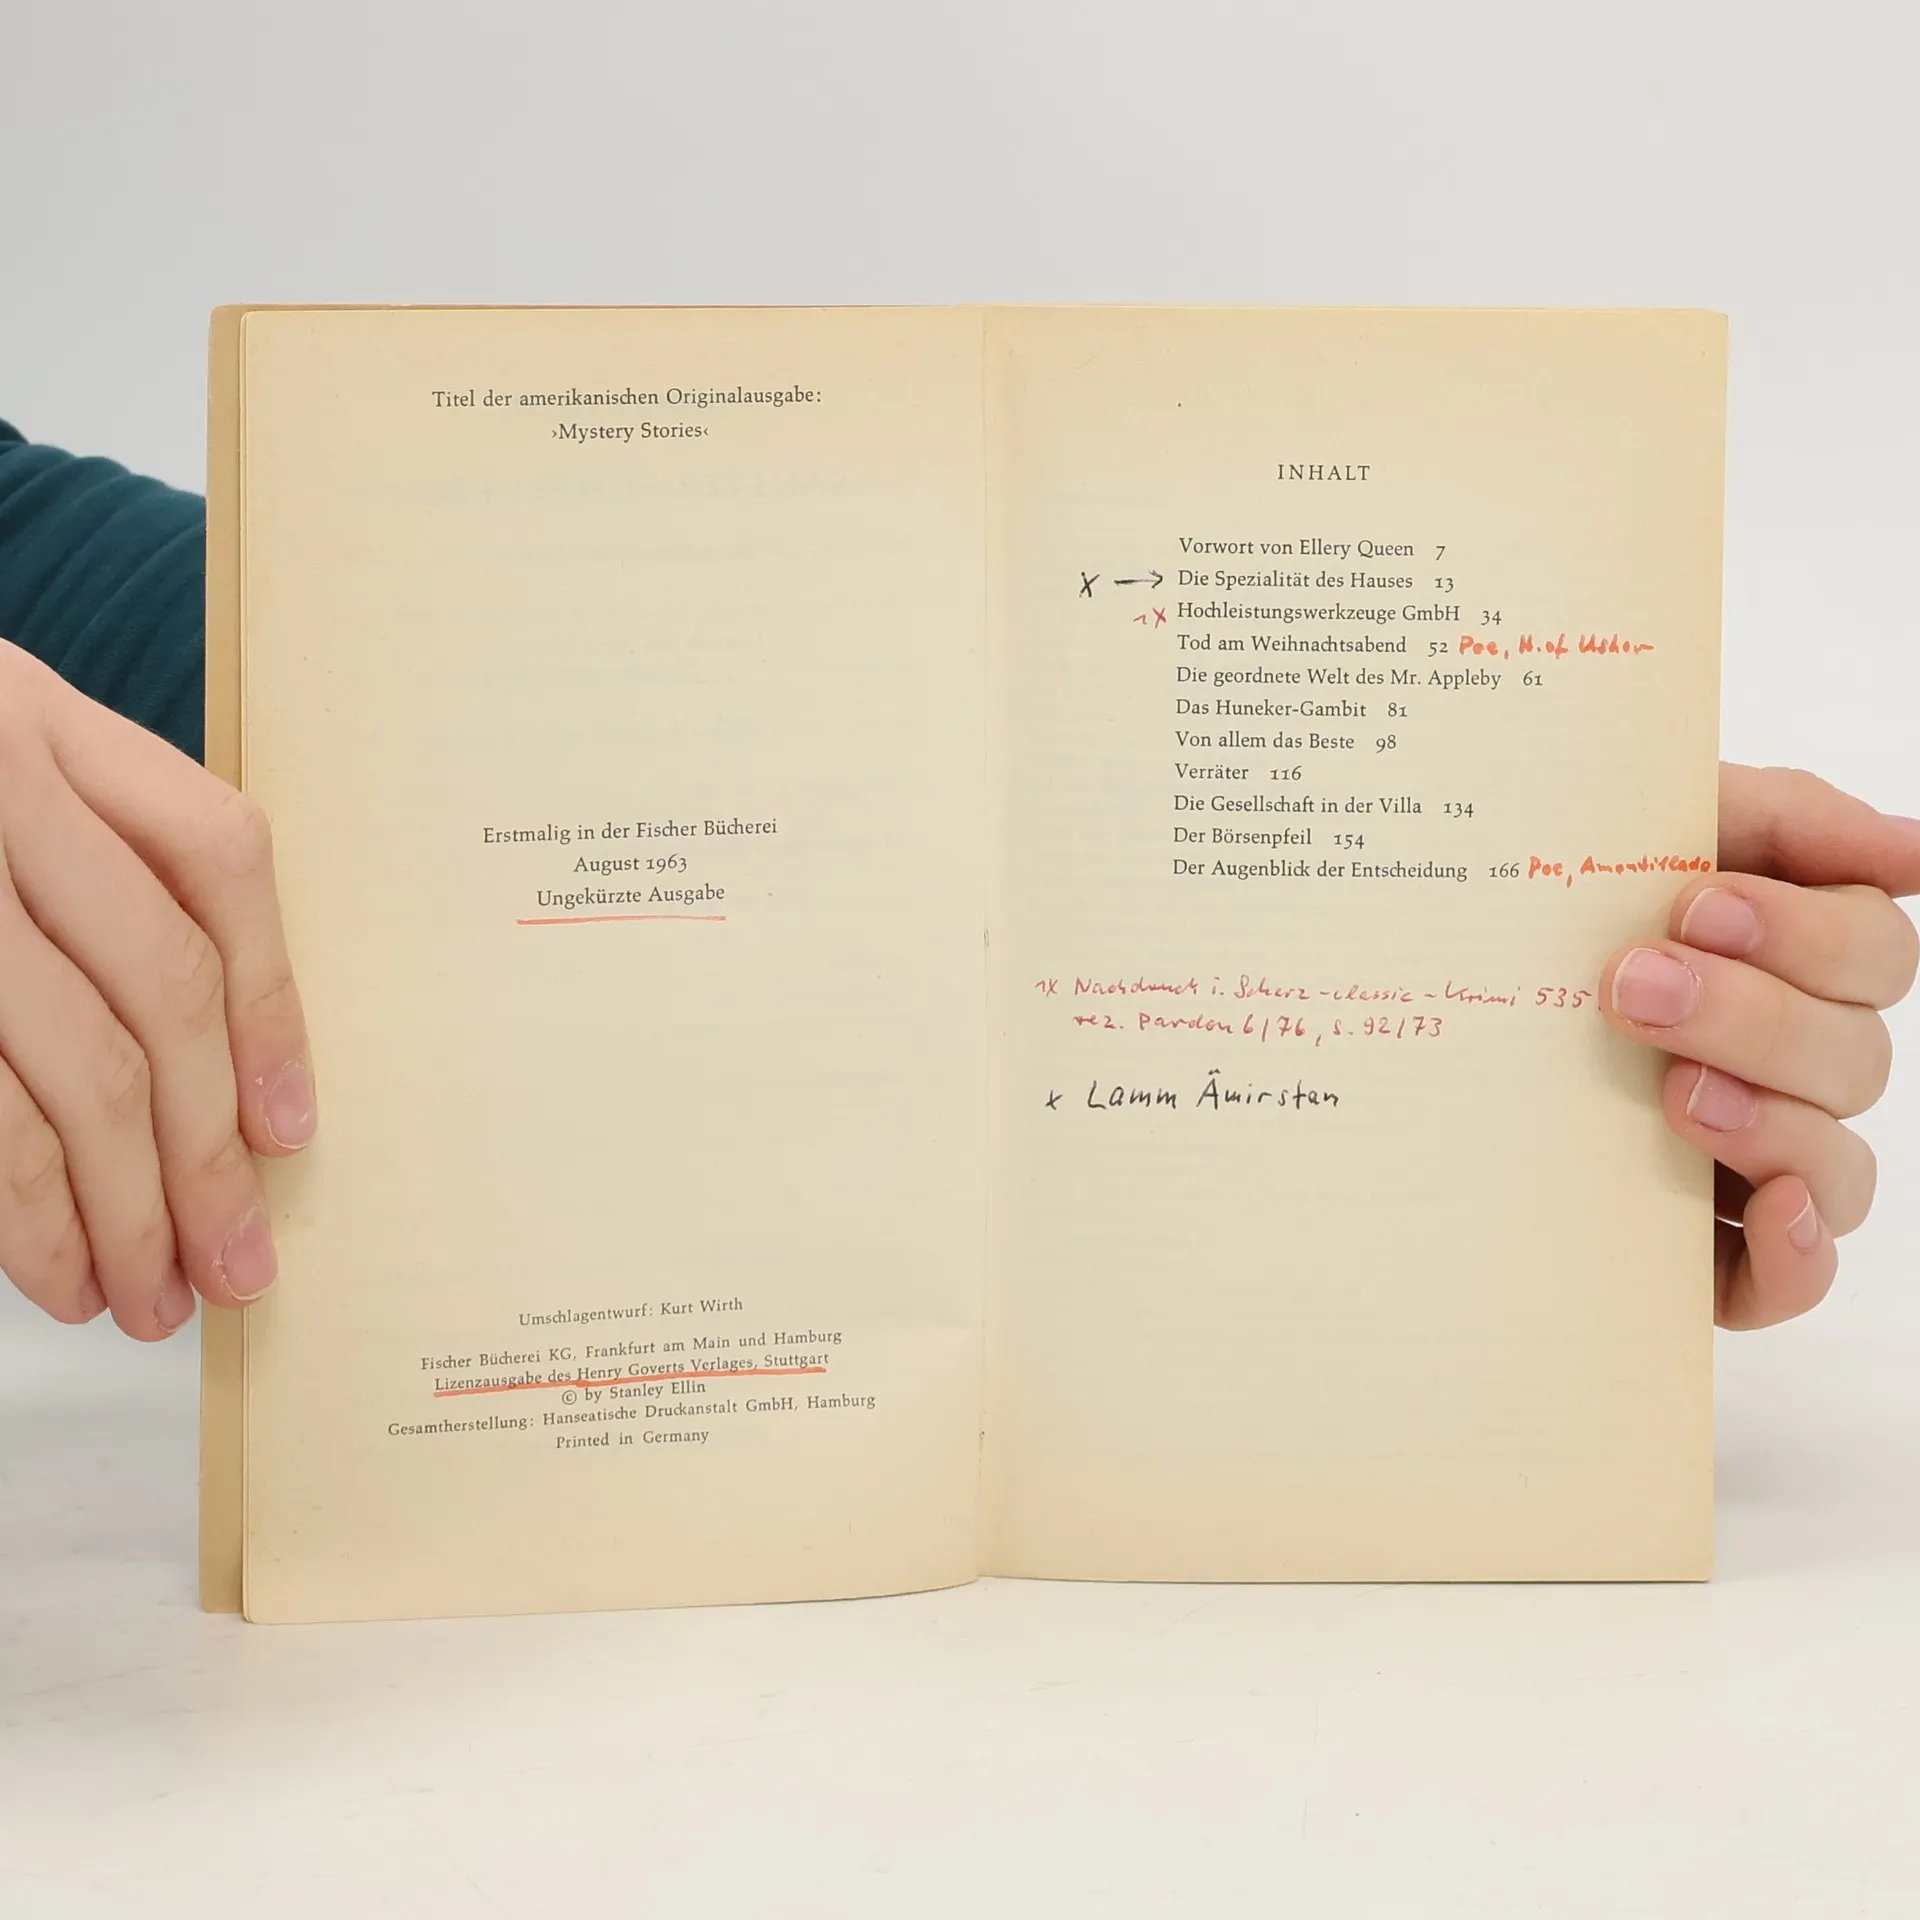 Titel der amerikanischen Originalausgabe:
›Mystery Stories‹
Erstmalig in der Fischer Bücherei
August 1963
Ungekürzte Ausgabe
Umschlagentwurf: Kurt Wirth
Fischer Bücherei KG, Frankfurt am Main und Hamburg
Lizenzausgabe des Henry Goverts Verlages, Stuttgart
© by Stanley Ellin
Gesamtherstellung: Hanseatische Druckanstalt GmbH, Hamburg
Printed in Germany
INHALT
Vorwort von Ellery Queen 7
x → Die Spezialität des Hauses 13
1x Hochleistungswerkzeuge GmbH 34
Tod am Weihnachtsabend 52 Poe, H. of Usher
Die geordnete Welt des Mr. Appleby 61
Das Huneker-Gambit 81
Von allem das Beste 98
Verräter 116
Die Gesellschaft in der Villa 134
Der Börsenpfeil 154
Der Augenblick der Entscheidung 166 Poe, Amontillado
1x Nachdruck i. Scherz-classic-Krimi 535
rez. Pardon 6/76, S. 92/73
x Lamm Ämirstan